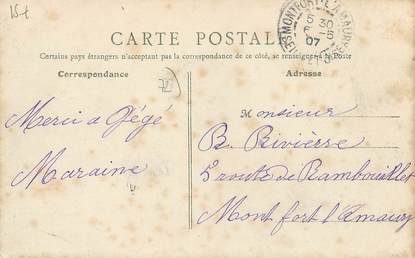 15 t
MONTFORT-L'AMAURY
5 30
6 -5
07
CARTE POSTALE
Certains pays étrangers n'acceptant pas la correspondance de ce côté, se renseigner à la Poste
Correspondance
Adresse
Merci a Gégé
Maraine
Monsieur
B. Rivièrre
route de Rambouillet
Mont fort l'Amaury